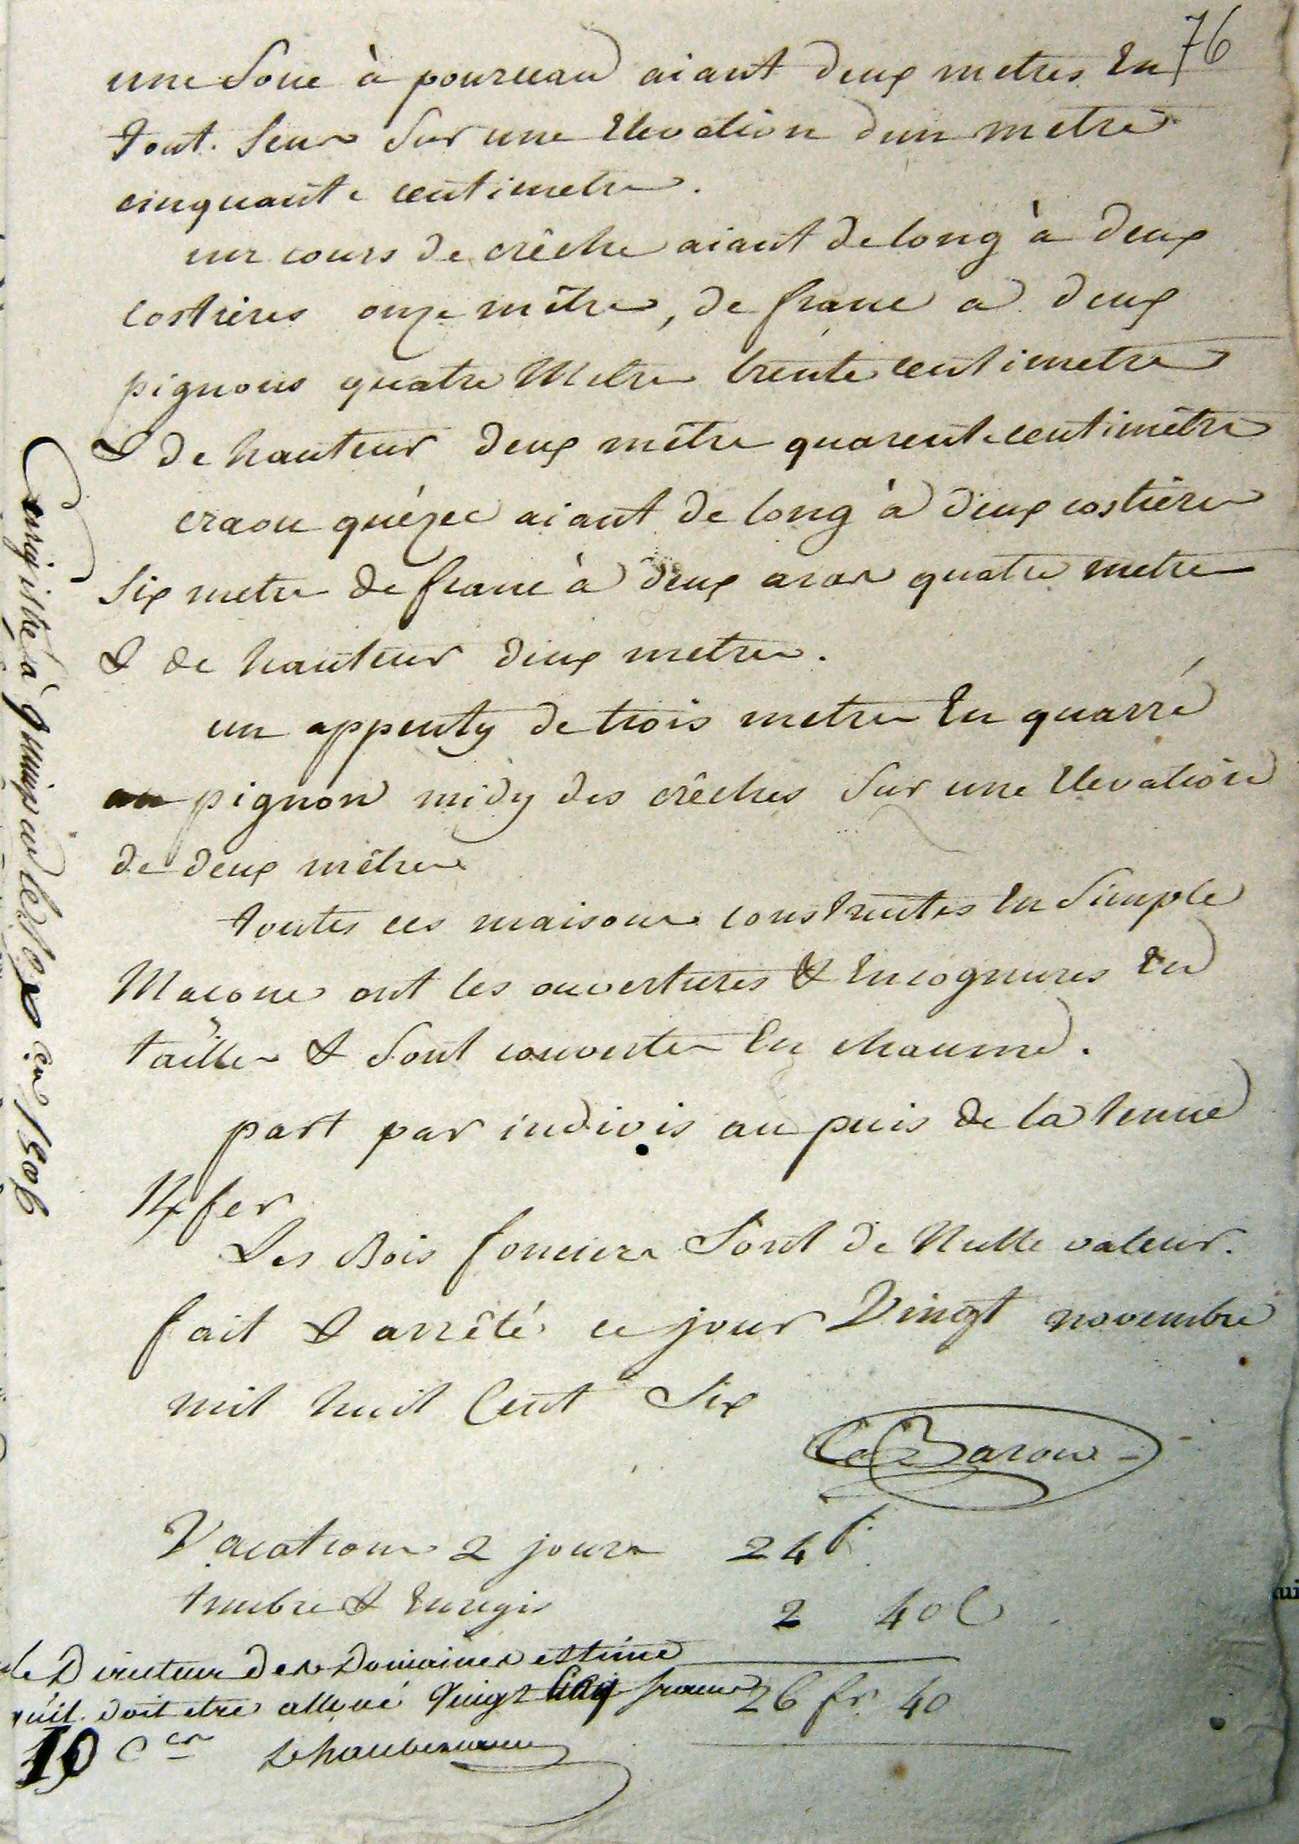 76
une Soue à pourceau aiant deux metres En
tout Sens Sur une Elevation d'un metre
cinquante centimetre.
un cours de crêche aiant de long à deux
costières onze mêtre, de franc a deux
pignons quatre Metre trente centimetre
& de hauteur deux mêtre quarente centimêtre
craou quézec aiant de long à deux costière
Six metre de franc à deux quatre metre
& de hauteur deux metre.
un appenty de trois metre En quarré
au pignon midy des crêches Sur une Elevation
de deux mêtre
toutes ces maisons construites En Simple
Macone ont les ouvertures & Encognures En
taille & Sont couverte En chaume.
part par indivis au puis de la tenue
14 fer
Les Bois fonciers Sont de Nulle valeur.
fait & arrêté ce jour Vingt novembre
mil huit Cent Six
Le Baron
Vacations 2 jours 24 f.
timbre & Enregis 2 40 c
26 fr 40
le Directeur des Domaines estime
qu'il doit etre alloué Vingt Cinq francs
10 Ces
Enregistré à quimper le Xbre 1806